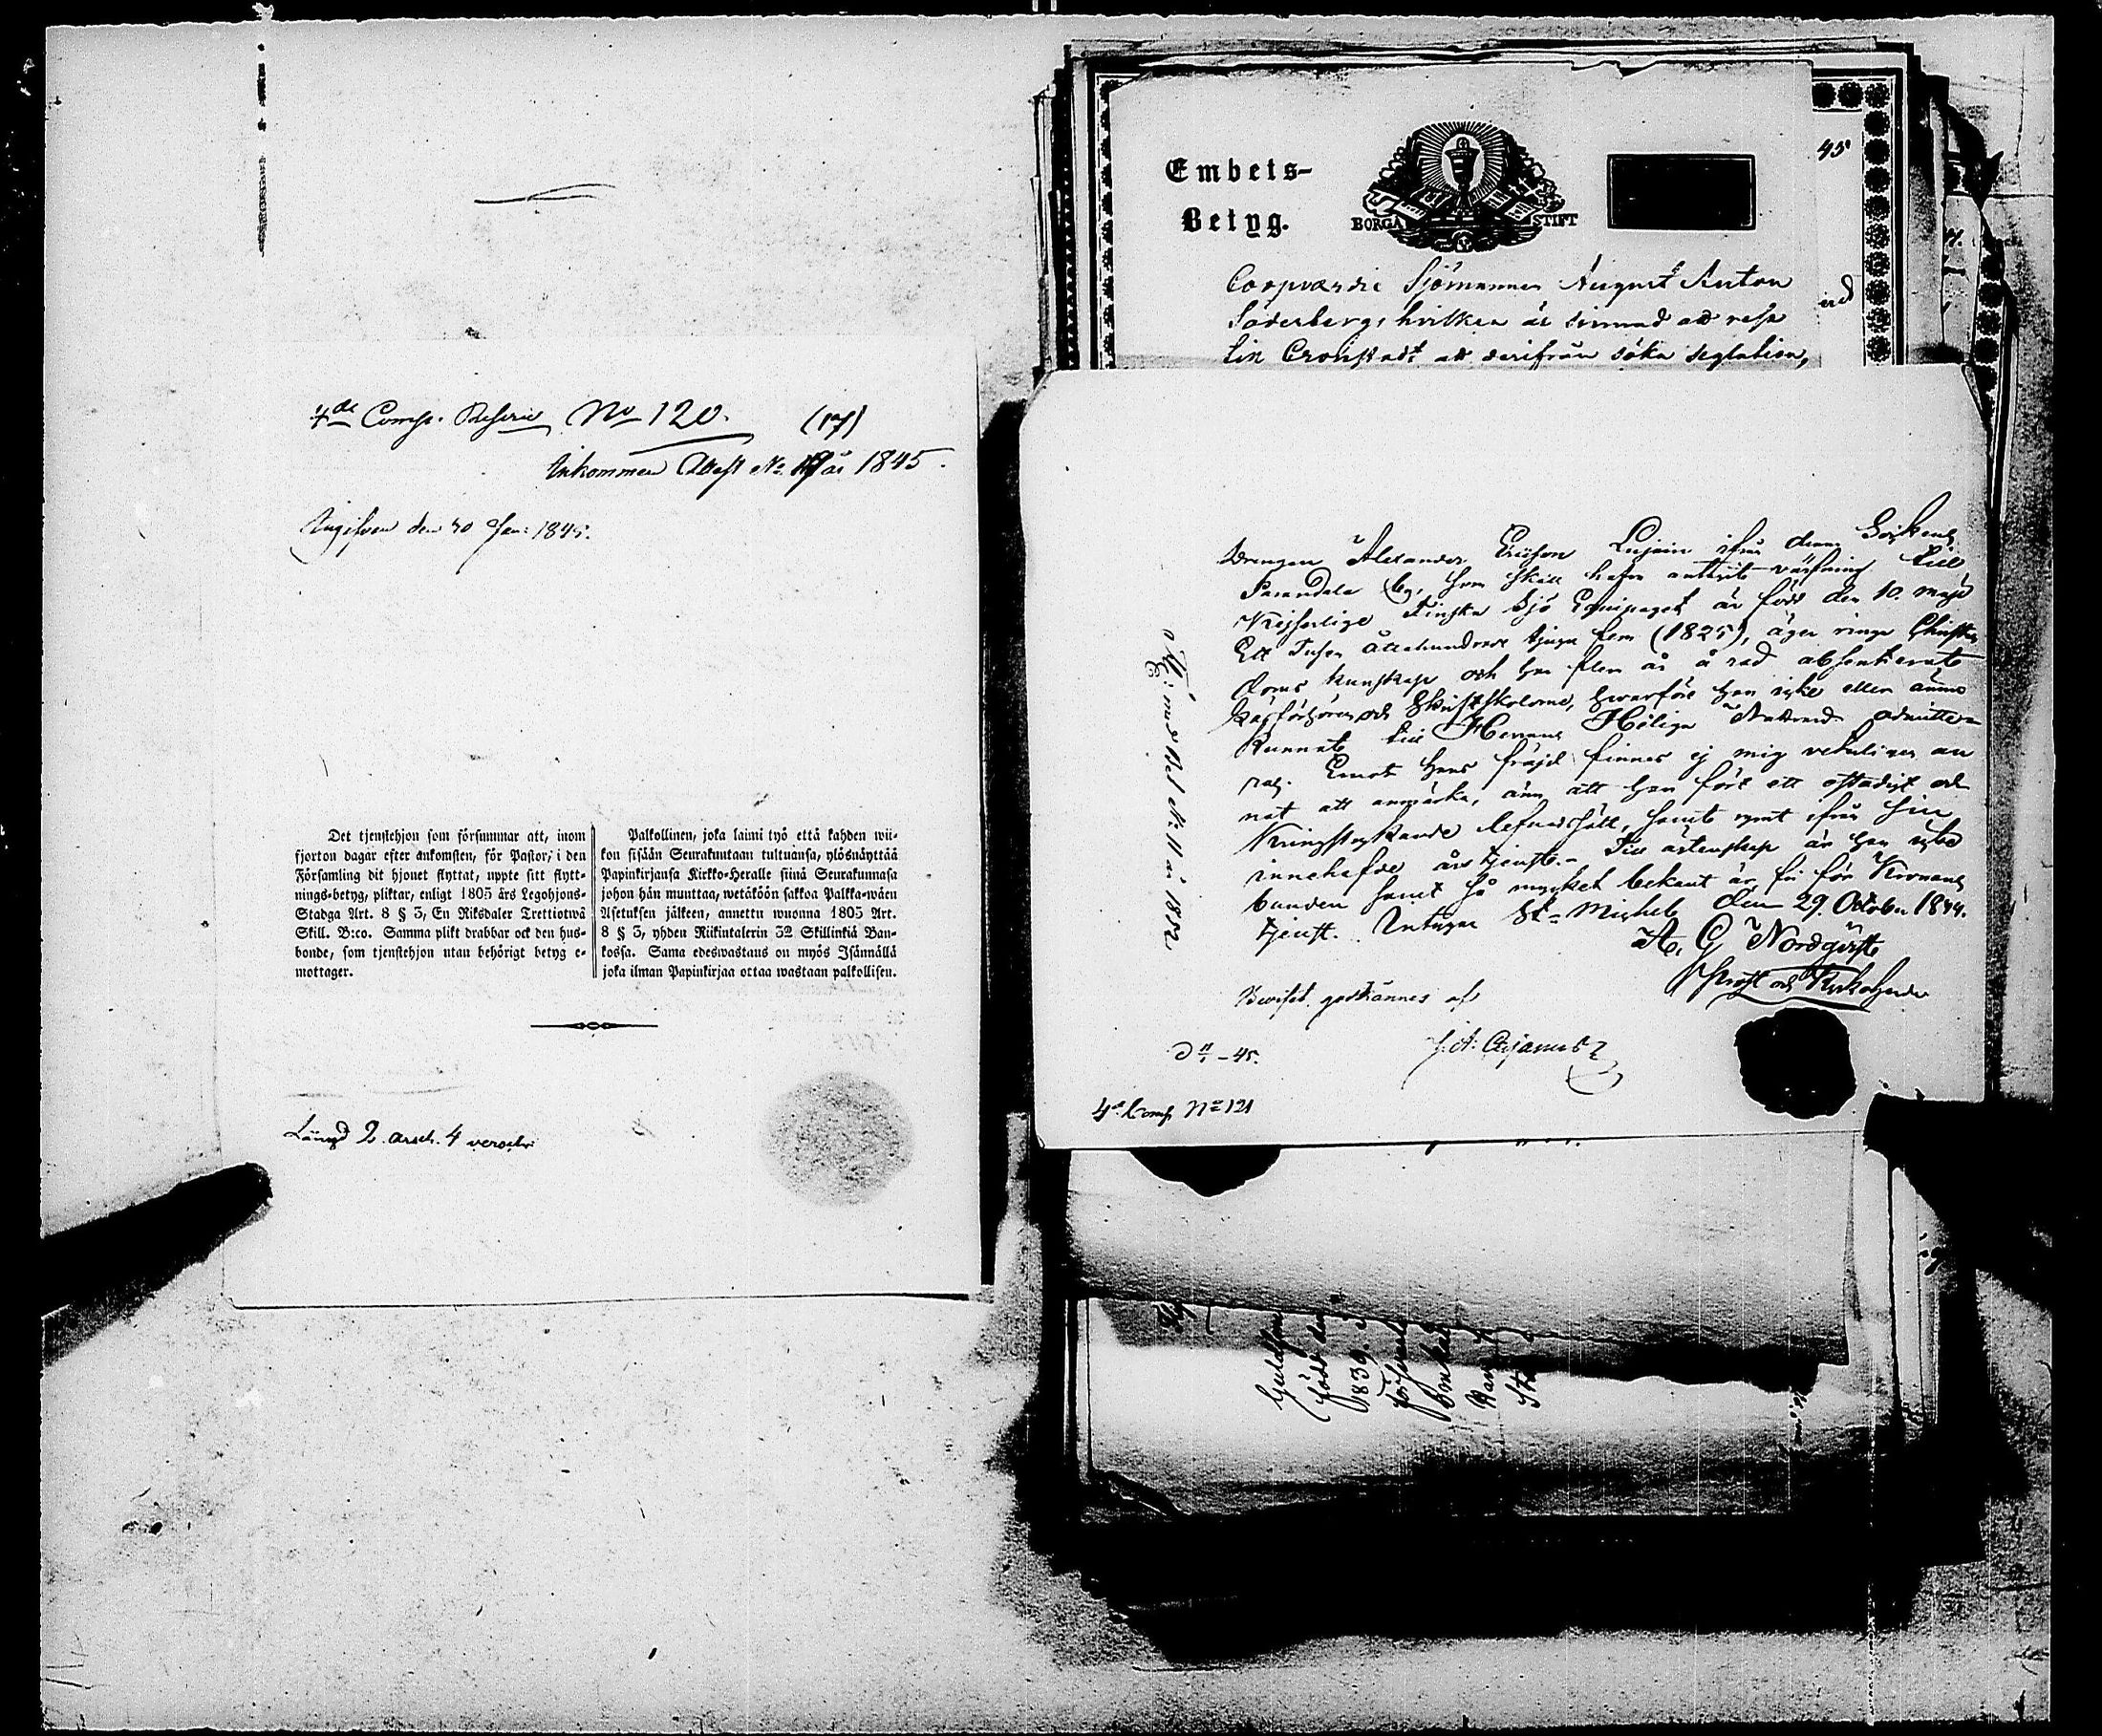 4de Comp. Reserv No 120. (17)
Inkommen Attest No 17 år 1845.
Angifven den 30 Jan: 1845.
Det tjenstehjon som försummar att, inom
fjorton dagar efter ankomsten, för Pastor, i den
Församling dit hjonet flyttat, uppte sitt flytt-
nings-betyg, pliktar, enligt 1805 års Legohjons-
Stadga Art. 8 § 3, En Riksdaler Trettiotwå
Skill. B:co. Samma plikt drabbar ock den hus-
bonde, som tjenstehjon utan behörigt betyg e-
mottager.
Palkollinen, joka laimi lyö että kahden wii-
kon sisään Seurakuntaan tultuansa, ylösnäyttää
Papinkirjansa Kirkko-Heralle siinä Seurakunnasa
johon hän muuttaa, wetäköön sakkoa Palkka-wäen
Asetuksen jälkeen, annettu wuonna 1805 Art.
8 § 3, yhden Riikintalerin 32 Skillinkiä Ban-
kossa. Sama edeswastaus on myös Isännällä
joka ilman Papinkirjaa ottaa wastaan palkollisen.
Längd 2 arsch. 4 versch:
Embets-
Betyg.
BORGÅ STIFT
45
Coopværdie Sjömannen August Anton
Söderberg, hvilken är sinnad att resa
till Cronstadt att derifrån söka seglation,
Drengen Alexander Ericson ifrån denna Sockens
by, som skall hafva antagit värfning till
Kejserlige Finska Sjö Equipaget är född den 10. Maji
Ett Tusen Åttahundrade tjugu fem (1825), äger ringa Christen
doms kunskap och har flera år å rad absenterat
Läsförhören och Skriftskolorna, hvarföre han icke eller ännu
kunnat till Herrans Heliga Nattvard admitte-
ras. Emot hans frejd finnes ej mig veterligen an
nat att anmärka, änn att han fört ett ostadigt och
Kringstrykande lefnadssätt, samt rymt ifrån sin
innehafde årstjenst. Till äktenskap är han icke
bunden samt så mycket bekant är fri för Kronans
tjenst. St Michel den 29. October 1844.
A. G. Nordqvist
Prost och Kyrkoherde
Beviset godkännes af
4de Comp No 121
född den
1839.